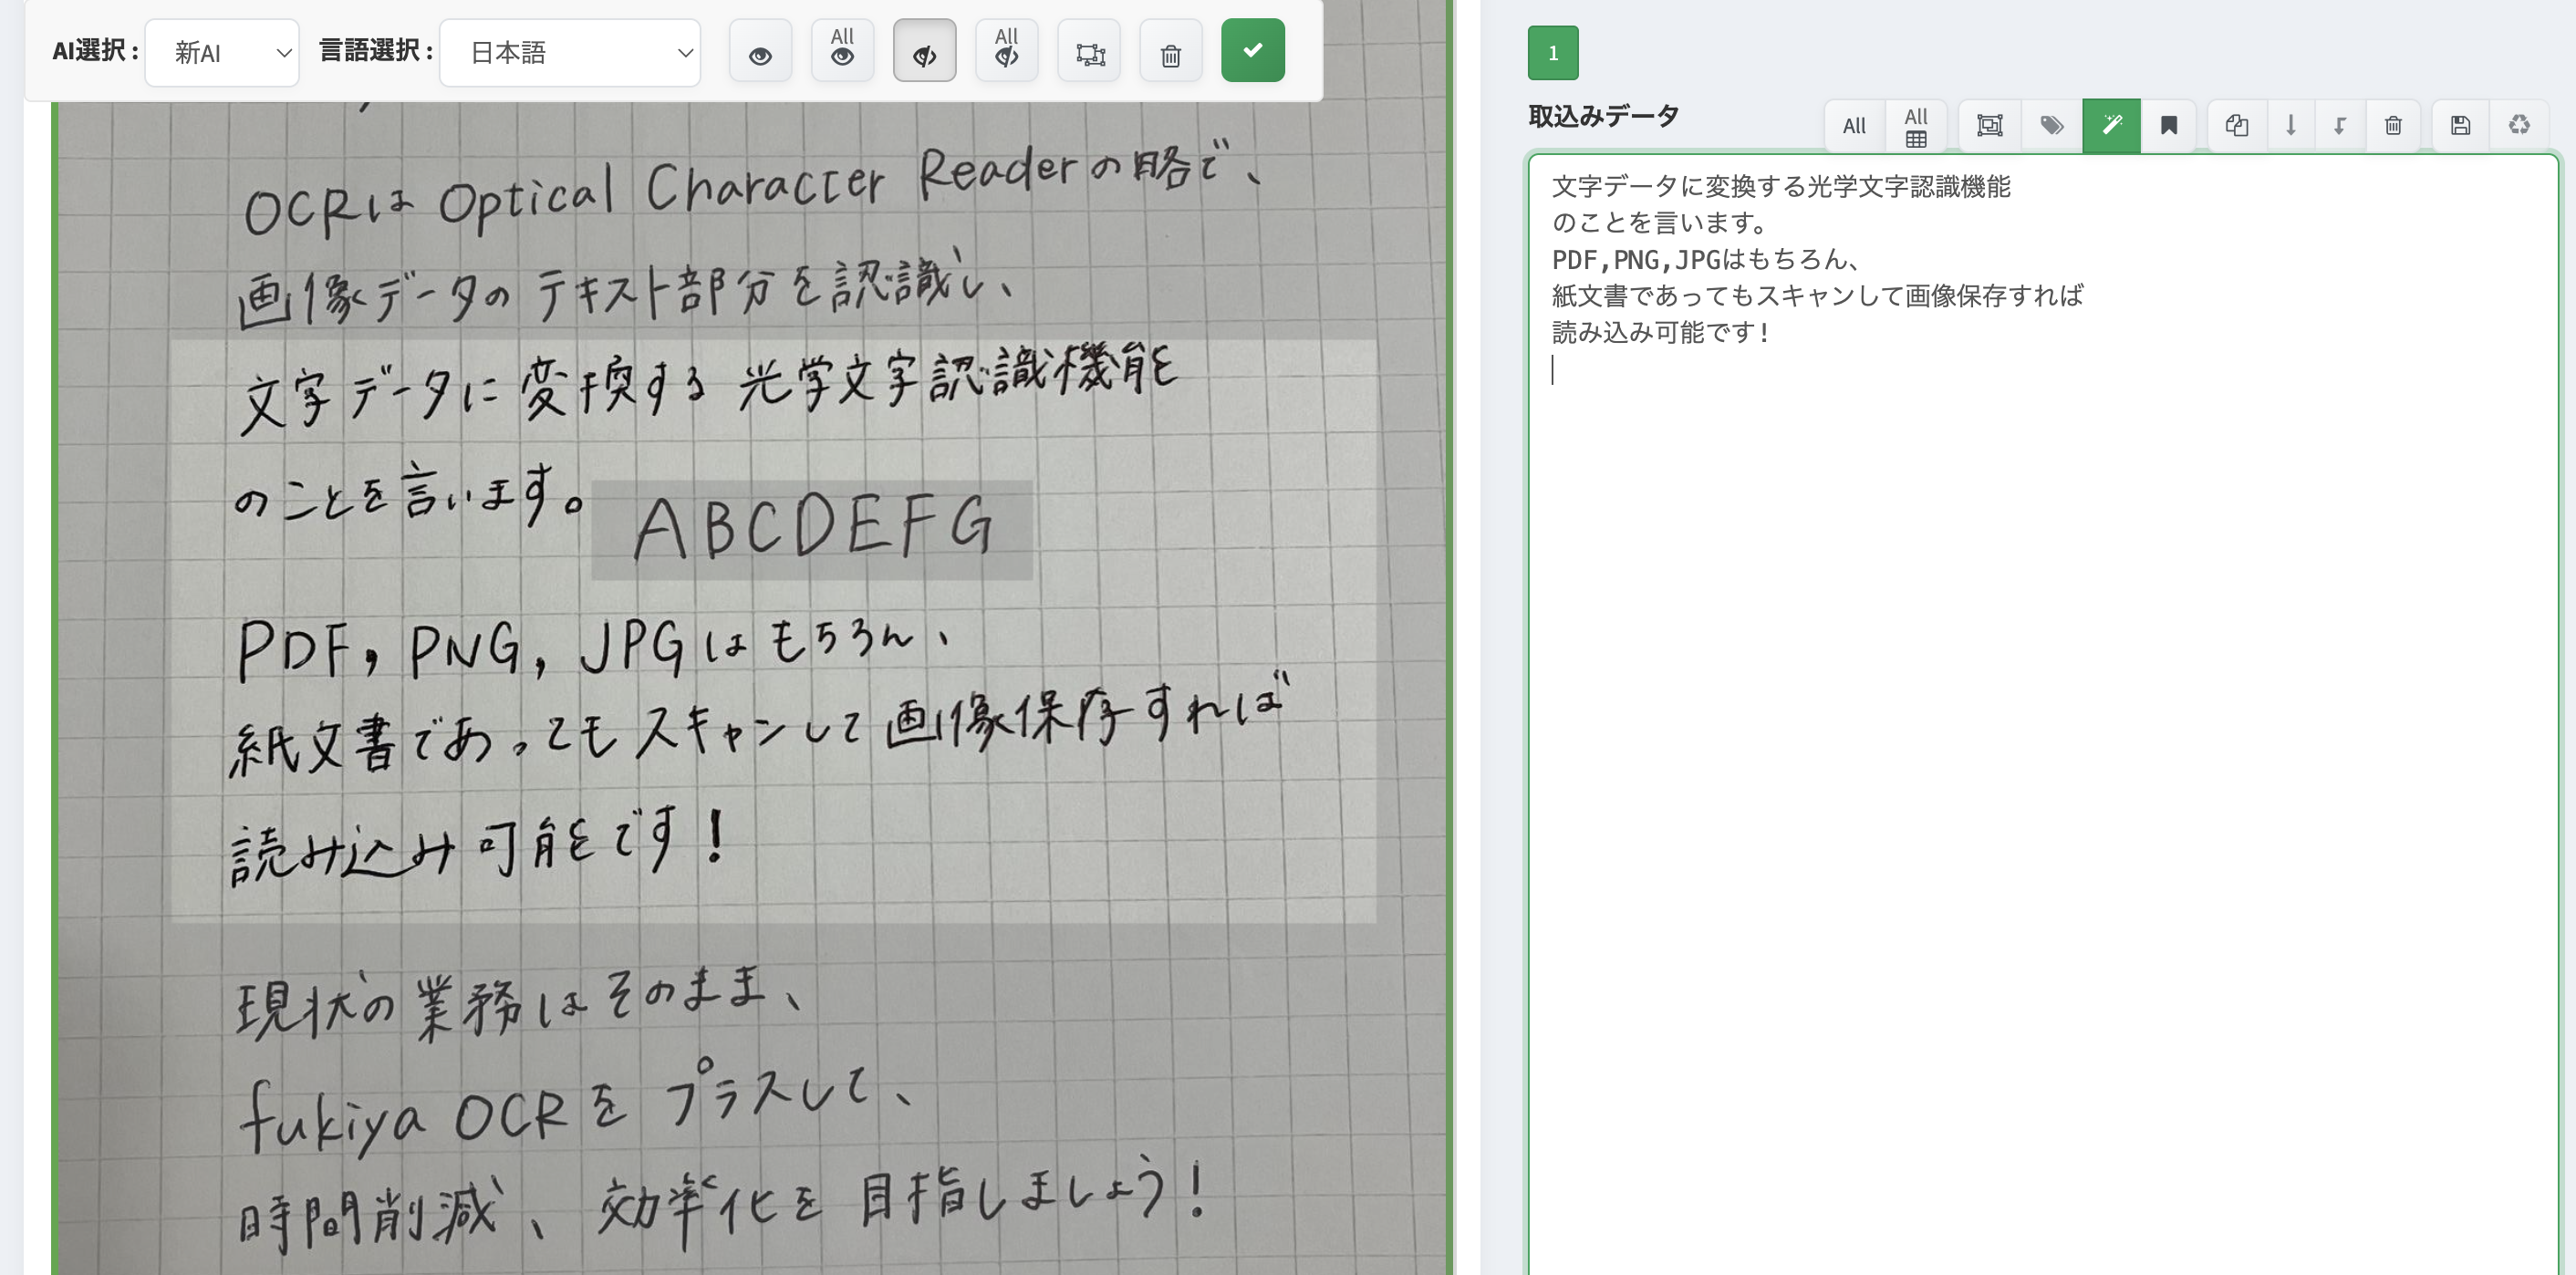 AI選択 : 新AI 言語選択 : 日本語 All All
OCRは Optical Character Readerの略で、
画像データのテキスト部分を認識し、
文字データに変換する光学文字認識機能
のことを言います。
ABCDEFG
PDF, PNG, JPGはもちろん、
紙文書であってもスキャンして画像保存すれば
読み込み可能です!
現状の業務はそのまま、
fukiya OCRをプラスして、
時間削減、効率化を目指しましょう!
1
取込みデータ All All
文字データに変換する光学文字認識機能
のことを言います。
PDF,PNG,JPGはもちろん、
紙文書であってもスキャンして画像保存すれば
読み込み可能です!